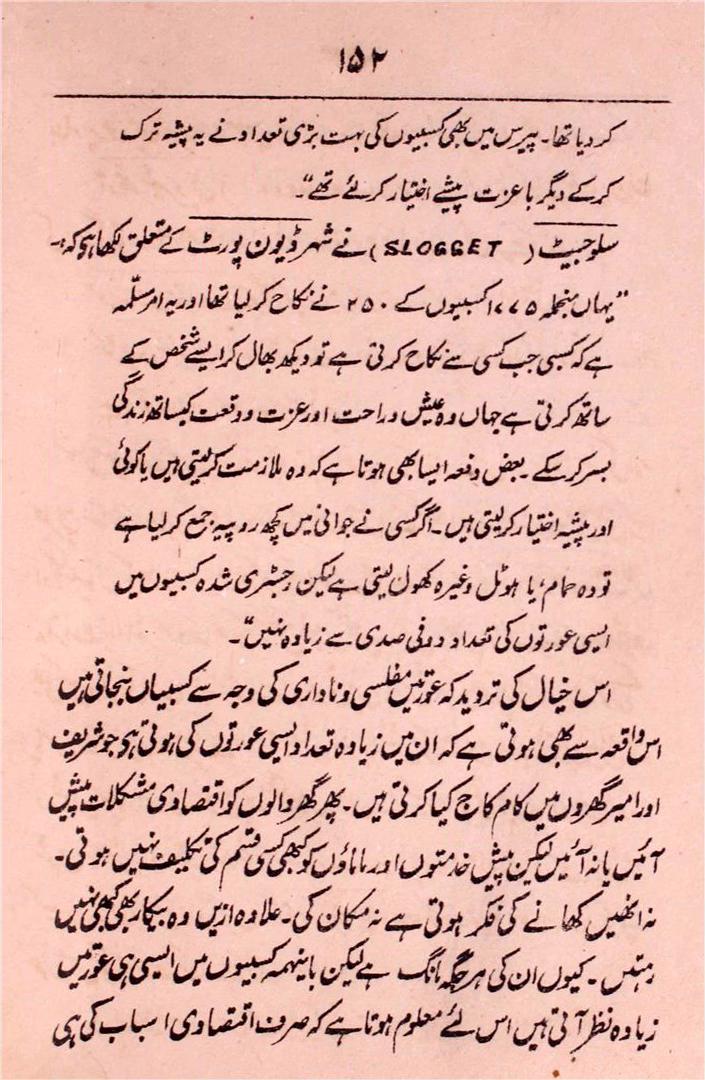 ۱۵۲
کر دیا تھا۔ پیرس میں بھی کسبیوں کی بہت بڑی تعداد نے یہ پیشہ ترک
کرکے دیگر باعزت پیشے اختیار کرلئے تھے"۔
سلوجیٹ (SLOGGET) نے شہر ڈیون پورٹ کے متعلق لکھا ہی کہ:۔
"یہاں منجملہ ۱۷۷۵ کسبیوں کے ۲۵۰ نے نکاح کر لیا تھا اور یہ امر مسلّمہ
ہے کہ کسبی جب کسی سے نکاح کرتی ہے تو دیکھ بھال کر ایسے شخص کے
ساتھ کرتی ہے جہاں وہ عیش و راحت اور عزت و وقعت کیساتھ زندگی
بسر کر سکے۔ بعض دفعہ ایسا بھی ہوتا ہے کہ وہ ملازمت کرلیتی ہیں یا کوئی
اور پیشہ اختیار کرلیتی ہیں۔ اگر کسی نے جوانی میں کچھ روپیہ جمع کر لیا ہے
تو وہ حمام، یا ہوٹل وغیرہ کھول لیتی ہے لیکن رجسٹری شدہ کسبیوں میں
ایسی عورتوں کی تعداد دو فی صدی سے زیادہ نہیں"۔
اس خیال کی تردید کہ عورتیں مفلسی و ناداری کی وجہ سے کسبیاں بنجاتی ہیں
اس واقعہ سے بھی ہوتی ہے کہ ان میں زیادہ تعداد ایسی عورتوں کی ہوتی ہی جو شریف
اور امیر گھروں میں کام کاج کیا کرتی ہیں۔ پھر گھر والوں کو اقتصادی مشکلات پیش
آئیں یا نہ آئیں لیکن پیش خدمتوں اور ماماؤں کو کبھی کسی قسم کی تکلیف نہیں ہوتی۔
نہ انھیں کھانے کی فکر ہوتی ہے نہ مکان کی۔ علاوہ ازیں وہ بیکار بھی کبھی نہیں
رہتیں۔ کیوں ان کی ہر جگہ مانگ ہے لیکن باینہمہ کسبیوں میں ایسی ہی عورتیں
زیادہ نظر آتی ہیں اس لئے معلوم ہوتا ہے کہ صرف اقتصادی اسباب کی ہی